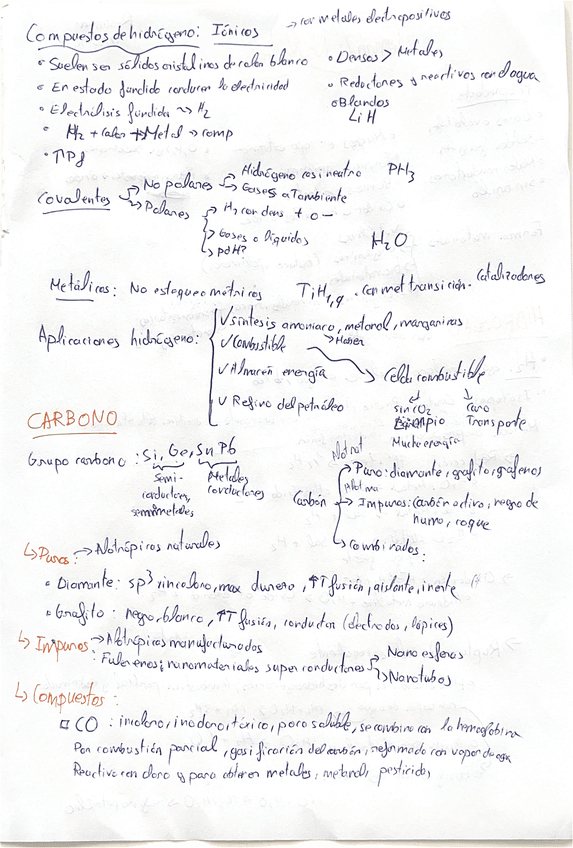 Compuestos de hidrógeno: Iónicos → con metales electropositivos
• Suelen ser sólidos cristalinos de color blanco
• Densos > Metales
• En estado fundido conducen la electricidad
• Reductores y reactivos con el agua
• Electrólisis fundida → H2
• Blandos
LiH
• H2 + calor + Metal → comp
• ↑Pf
Covalentes → No polares → Hidrógeno casi neutro PH3
→ Gases a Tambiente
→ Polares → H2 con dens + o -
→ Gases o líquidos H2O
→ pdH?
Metálicos: No estequeométricos TiH1,9 . Con met transición. Catalizadores
Aplicaciones hidrógeno:
✓ síntesis amoniaco, metanol, margarinas
→ Haber
✓ Combustible → Celda combustible
✓ Almacén energía
sin CO2 caro
✓ Refino del petróleo
Limpio Transporte
Mucha energía
CARBONO
Grupo carbono: Si, Ge, Sn Pb
Semi-conductores, semimetales
Metales conductores
Carbón
Alot nat
→ Puro: diamante, grafito, grafenos
→ Impuros: carbón activo, negro de
humo, coque
→ combinados:
↳ Puros: → Alotrópicos naturales
• Diamante: sp3, incoloro, max dureza, ↑T fusión, aislante, inerte
• Grafito: negro, blanco, ↑T fusión, conductor (electrodos, lápices)
↳ Impuros → Alotrópicos manufacturados
: Fulerenos; nanomateriales super conductores → Nano esferas
→ Nanotubos
↳ Compuestos:
□ CO: incoloro, inodoro, tóxico, poco soluble, se combina con la hemoglobina
Por combustión parcial, gasificación del carbón, reformado con vapor de agua
Reactivo con cloro y para obtener metales, metanol, pesticidas